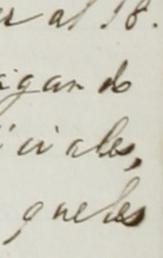 er al 18.
igando
iciales,
queles